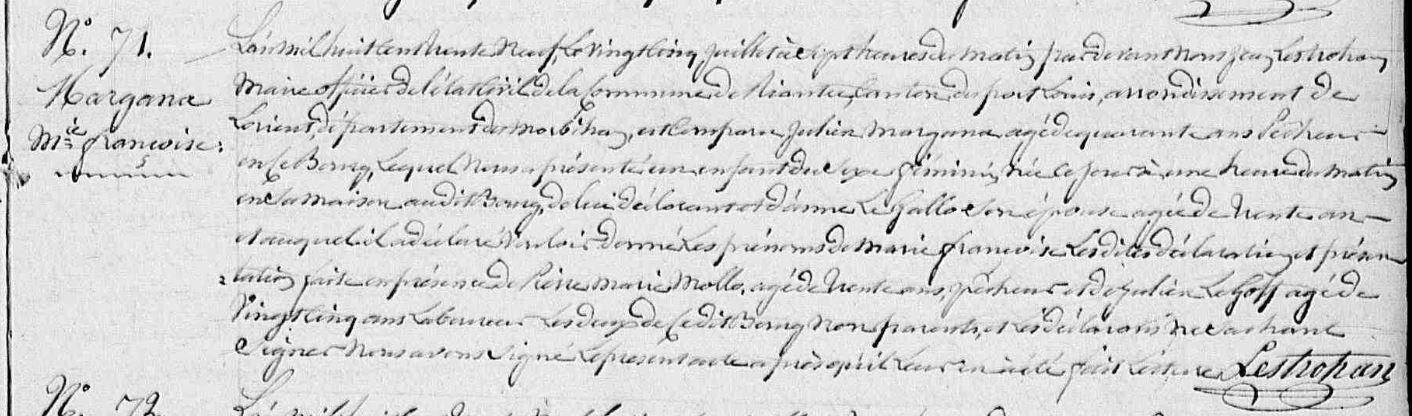 N° 71.
Margana
Mie françoise
L'an mil huit cent trente neuf, le vingt cinq juillet à sept heures du matin, par devant nous Jean Lestrohan
Maire officier de l'état civil de la commune de Riantec, canton du port Louis, arrondissement de
Lorient, département du Morbihan, est comparu Julien Margana agé de quarante ans Pêcheur
en ce Bourg, lequel nous a présenté un enfant du sexe féminin, née ce jour à une heure du matin
en sa maison audit Bourg, de lui déclarant et d'anne Le Gallo son épouse agée de trente ans
et auquel il a déclaré vouloir donné les prénoms de Marie françoise Lesdites déclaration et présen
tation faite en présence de Pierre Marie Mollo, agé de trente ans, pêcheur et de Julien Le Goff agé de
Vingt cinq ans Laboureur les deux de cedit Bourg non parents, et les déclarants ne sachant
signer nous avons signé le présent acte après qu'il leur en a été fait lecture. Lestrohan
N° 72.
L'an mil huit cent